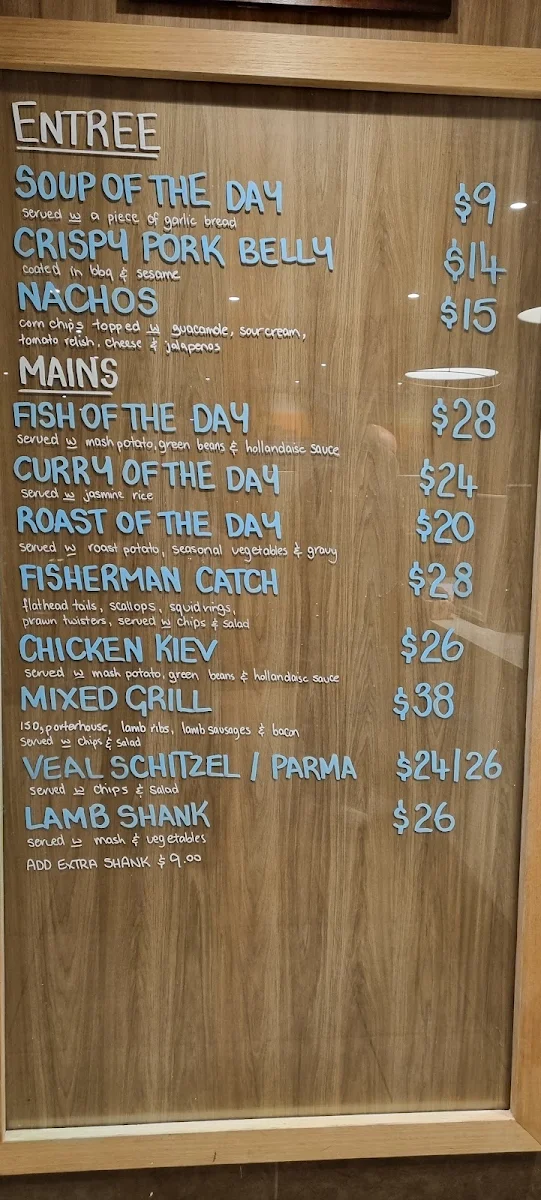 ENTREE
SOUP OF THE DAY $9
served w a piece of garlic bread
CRISPY PORK BELLY $14
coated in bbq & sesame
NACHOS $15
corn chips topped w guacamole, sour cream,
tomato relish, cheese & jalapenos
MAINS
FISH OF THE DAY $28
served w mash potato, green beans & hollandaise sauce
CURRY OF THE DAY $24
served w jasmine rice
ROAST OF THE DAY $20
served w roast potato, seasonal vegetables & gravy
FISHERMAN CATCH $28
flathead tails, scallops, squid rings,
prawn twisters, served w chips & salad
CHICKEN KIEV $26
served w mash potato, green beans & hollandaise sauce
MIXED GRILL $38
150g porterhouse, lamb ribs, lamb sausages & bacon
served w chips & salad
VEAL SCHITZEL / PARMA $24/26
served w chips & salad
LAMB SHANK $26
served w mash & vegetables
ADD EXTRA SHANK $9.00